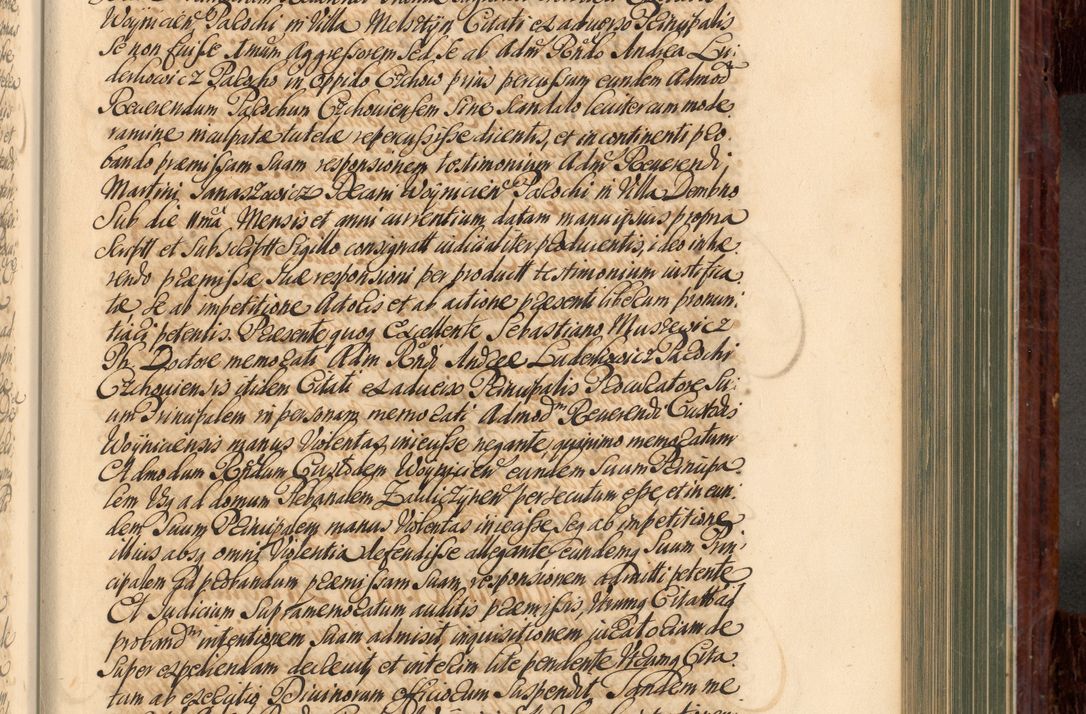 Woynicien Parochi in Villa Melsztyn Citati ex adverso Principalis
se non fuisse Imum Aggressorem sed se ab Admd Rndo Andrea Lu
derkowicz Parocho in oppido Czchow prius percussum eundem Admod
Reverendum Parochum Czchoviensem sine scandalo leviter cum mode
ramine inculpatæ tutelæ repercussisse dicentis, et in continenti pro
bando præmissam suam responsionem testimonium Admd Reverendi
Martini Janaszowicz Decani Woynicien Parochi in Villa Dembno
sub die Mensis et anni currentium datam manu ipsius propria
script et subscript sigillo consignatt iudicialiter producentis, ideo inhæ
rendo præmissæ suæ responsioni per productt testimonium iustifica
tæ se ab impetitione Actoris et ab actione præsenti liberum pronun
tiari petentis. Præsente quoq Excellente Sebastiano
Ph. Doctore memorati Adm Rndi Andreæ Luderkowicz Parochi
Czchoviensis itidem Citati ex adverso Principalis Procuratore su
um Principalem in personam memorati Admodm Reverendi Custodis
Woyniciensis manus violentas iniecisse negante, quinimo memoratum
Admodum Rndum Custodem Woynicien eundem suum Principa
lem usq ad domum Plebanalem Zakliczynen persecutum esse et in eun
dem suum Principalem manus violentas iniecisse seq ab impetitione
illius absq omni violentia defendisse allegante eundemq suum Prin
cipalem ad probandum præmissam suam responsionem admitti petente
Et Judicium supramemoratum auditis præmissis, utrumq Citatum ad
proband intentionem suam admisit inquisitionem iuratoriam de
super expediendam decrevit et interim lite pendente utrumq Cita
tum ab exercitio Divinorum officiorum suspendit Tandem me